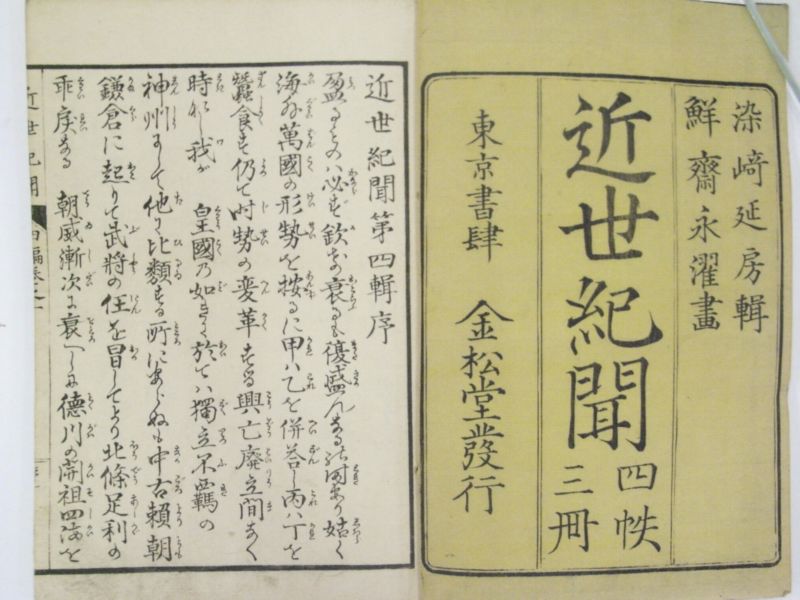 染﨑延房輯
鮮齋永濯畫
近世紀聞
四帙
三冊
東京書肆 金松堂發行
近世紀聞第四輯序
盈るものハ必ず欠
海外萬國の形勢を按るに甲ハ乙を併呑し丙ハ丁を
蠶食す仍て時勢の変革する興亡廢立間なく
時なし我が 皇國の如きに於てハ獨立不羈の
神州にして他に比類する所にあらぬも中古頼朝
鎌倉に起りて武將の任を冒してより北條足利の
乖戻なる 朝威漸次に衰へしに德川の開祖四海を
近世紀聞 四編巻之一